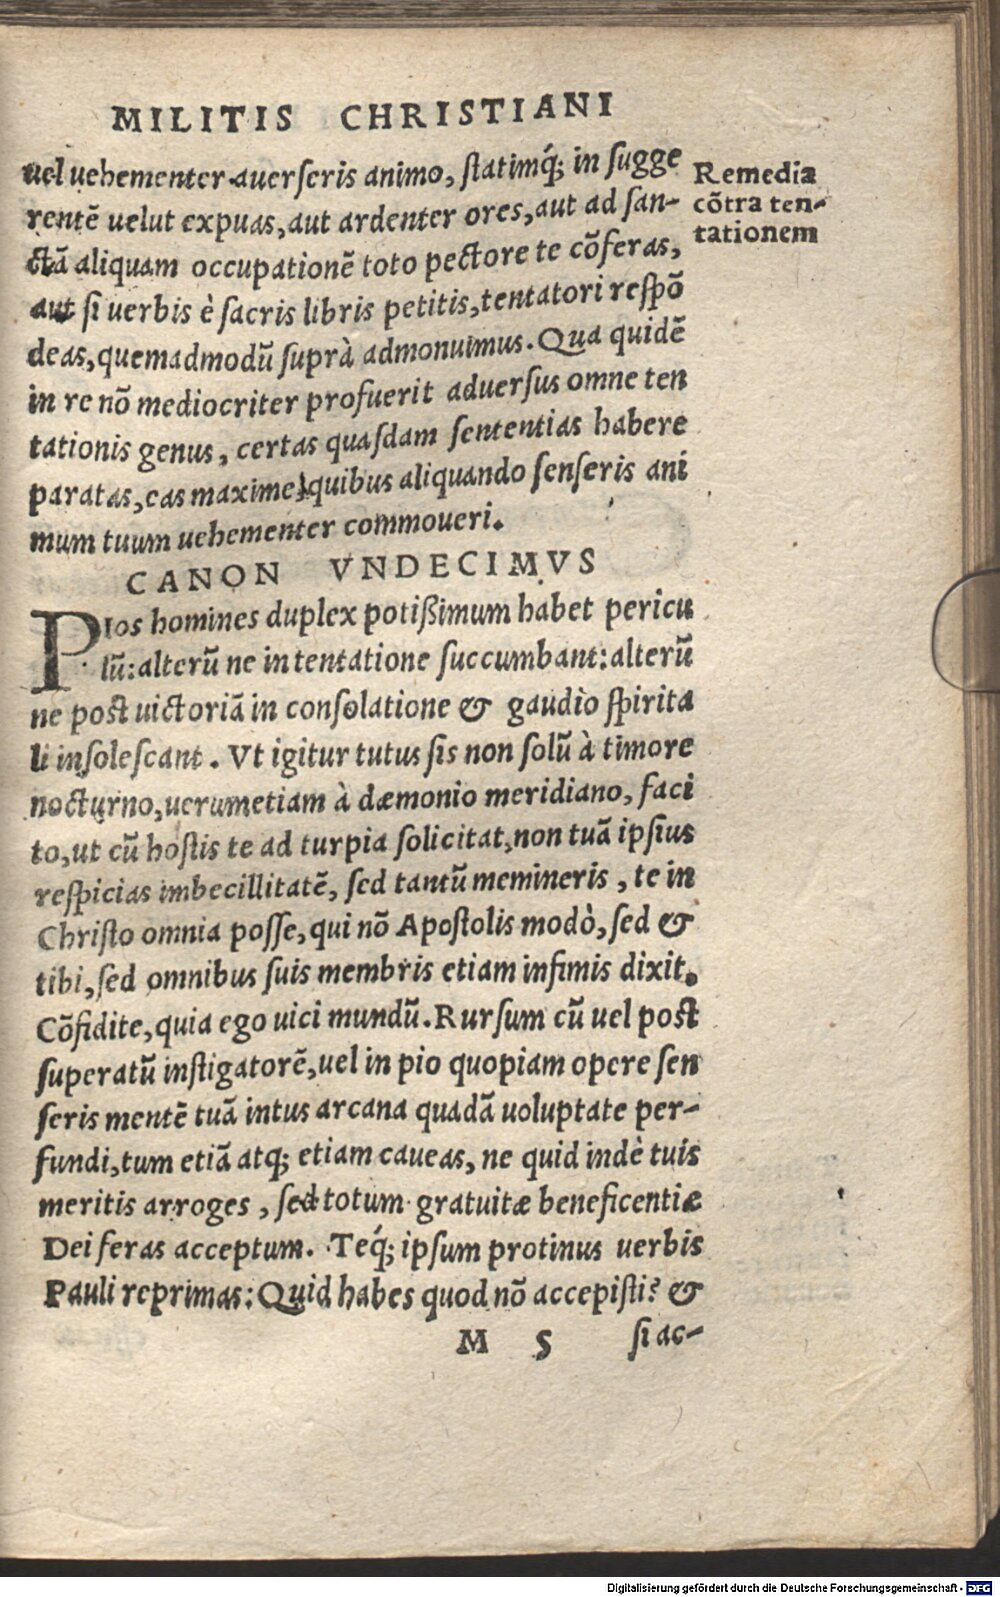 MILITIS CHRISTIANI
uel uehementer auerseris animo, statimq́; in sugge
rentē uelut expuas, aut ardenter ores, aut ad san-
ctā aliquam occupationē toto pectore te cōferas,
aut si uerbis è sacris libris petitis, tentatori respō
deas, quemadmodū suprà admonuimus. Qua quidē
in re nō mediocriter profuerit aduersus omne ten
tationis genus, certas quasdam sententias habere
paratas, eas maxime quibus aliquando senseris ani
mum tuum uehementer commoueri.
Remedia
cōtra ten-
tationem
CANON VNDECIMVS
PIos homines duplex potißimum habet pericu
lū: alterū ne in tentatione succumbant: alterū
ne post uictoriā in consolatione & gaudio spirita
li insolescant. Vt igitur tutus sis non solū à timore
nocturno, uerumetiam à dæmonio meridiano, faci
to, ut cū hostis te ad turpia solicitat, non tuā ipsius
respicias imbecillitatē, sed tantū memineris, te in
Christo omnia posse, qui nō Apostolis modò, sed &
tibi, sed omnibus suis membris etiam infimis dixit.
Cōfidite, quia ego uici mundū. Rursum cū uel post
superatū instigatorē, uel in pio quopiam opere sen
seris mentē tuā intus arcana quadā uoluptate per-
fundi, tum etiā atq; etiam caueas, ne quid indè tuis
meritis arroges, sed totum gratuitæ beneficentiæ
Dei feras acceptum. Teq́; ipsum protinus uerbis
Pauli reprimas: Quid habes quod nō accepisti? &
M 5 si ac-
Digitalisierung gefördert durch die Deutsche Forschungsgemeinschaft - DFG